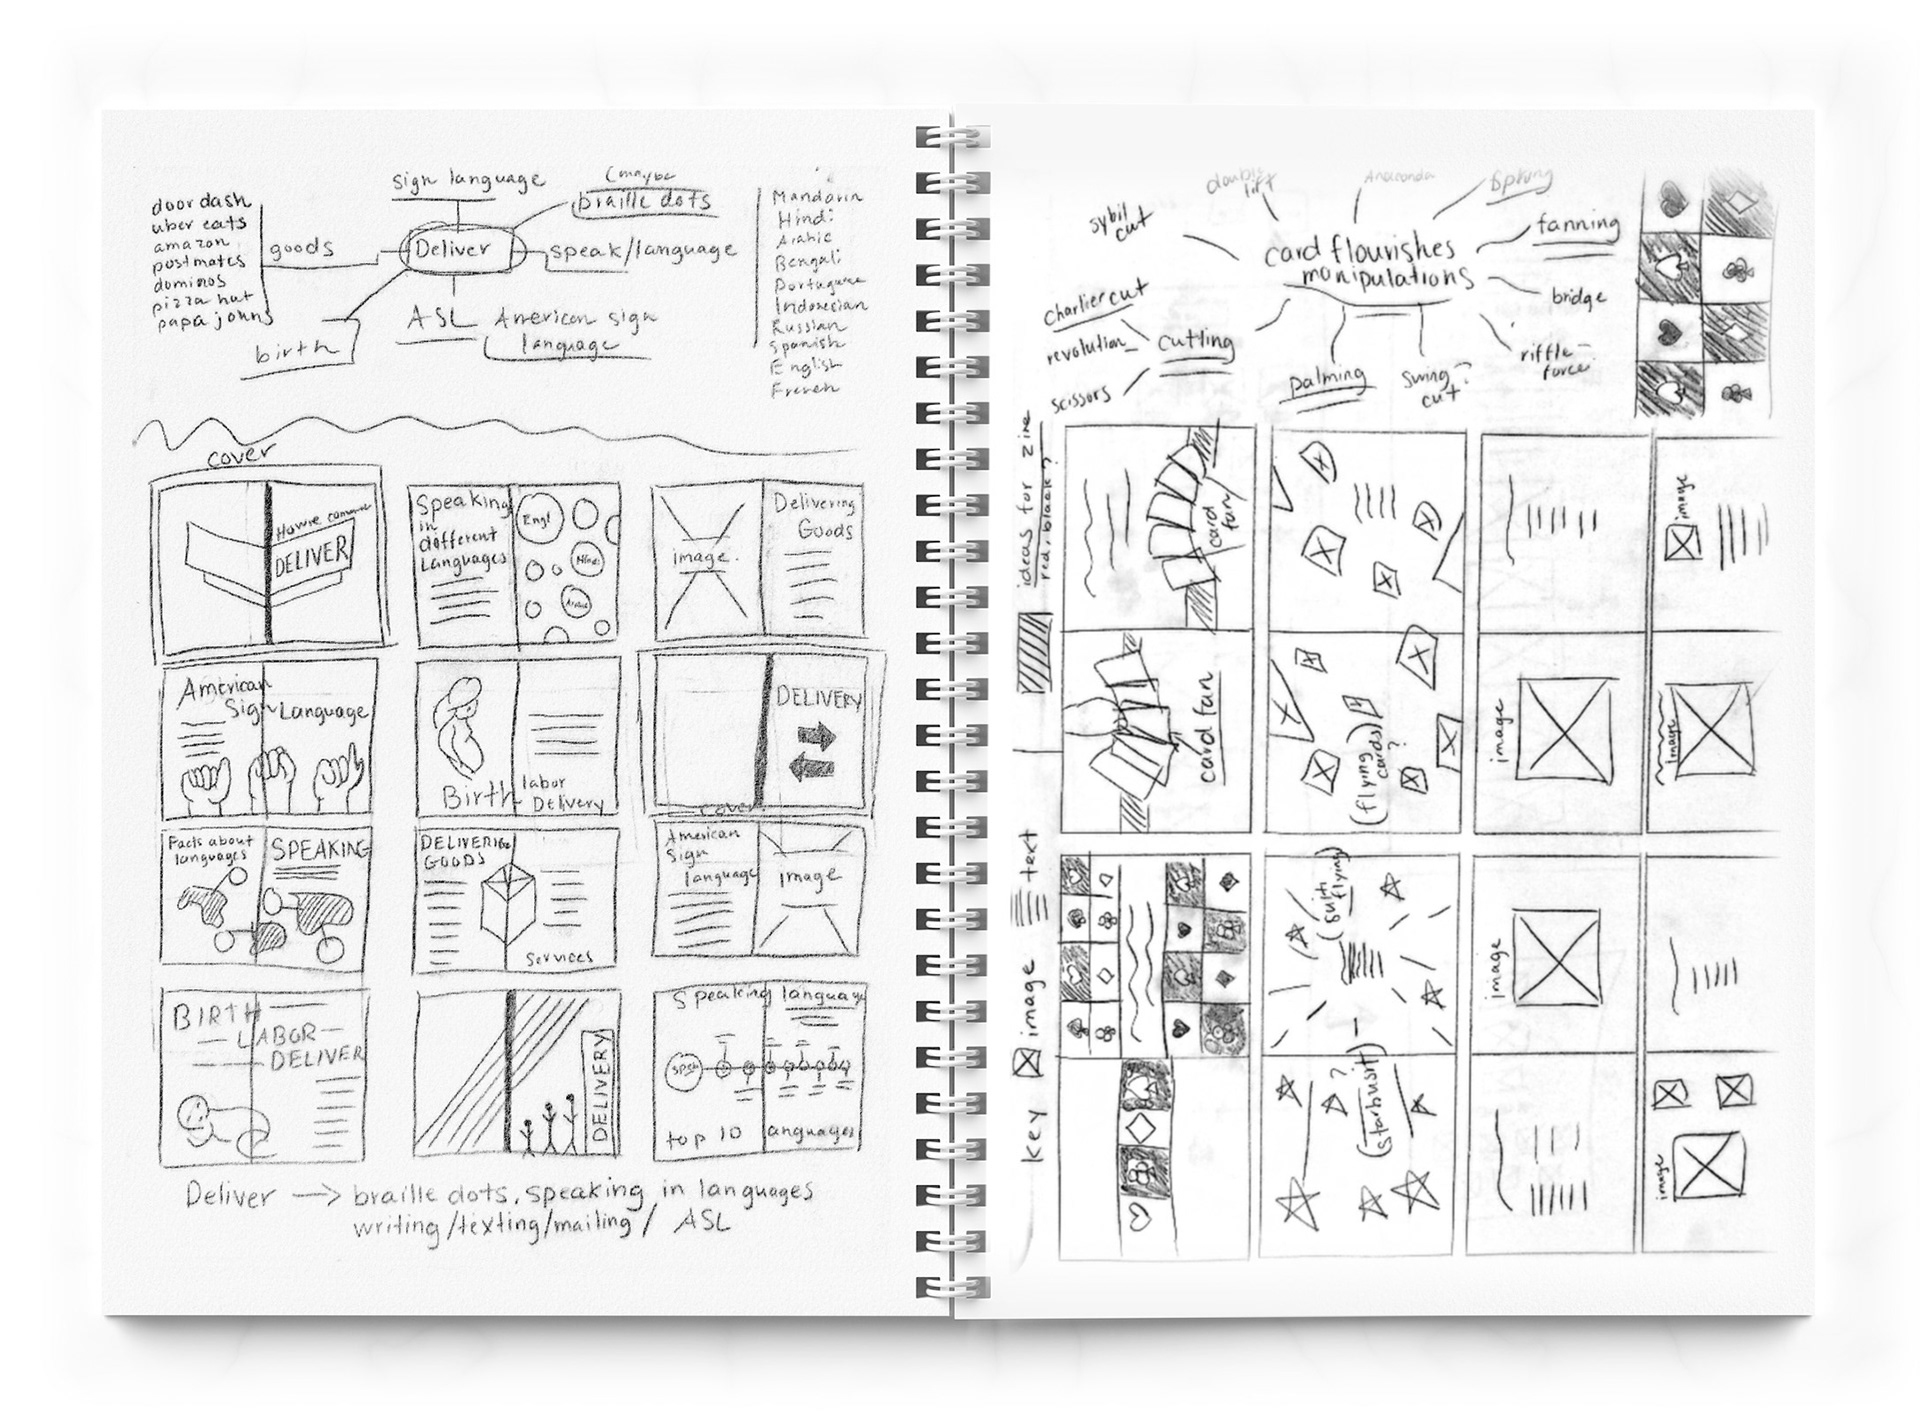 door dash
uber eats
amazon
postmates
dominos
pizza hut
papa johns
goods
sign language
(maybe
braille dots
Deliver
speak/language
ASL
American sign
language
birth
Mandarin
Hindi
Arabic
Bengali
Portuguese
Indonesian
Russian
Spanish
English
French
cover
DELIVER
Speaking
in
different
Languages
Engl
Hindi
Arabic
image.
Delivering
Goods
American
Sign Language
Birth
labor
Delivery
DELIVERY
cover
Facts about
languages
SPEAKING
DELIVERING
GOODS
services
American
Sign
language
image
BIRTH
LABOR
DELIVER
DELIVERY
Speaking language
top 10 languages
Deliver → braille dots, speaking in languages
writing/texting/mailing/ ASL
double
lift
Anaconda
Spring
sybil
cut
card flourishes
manipulations
fanning
bridge
charlier cut
revolution
scissors
cutting
palming
swing ?
cut
riffle
force
ideas for zine
red, black?
card
fan
card fan
(flying
cards)
?
image
image
image
key
image
text
(suit
flying)
(starburst)
?
image
image